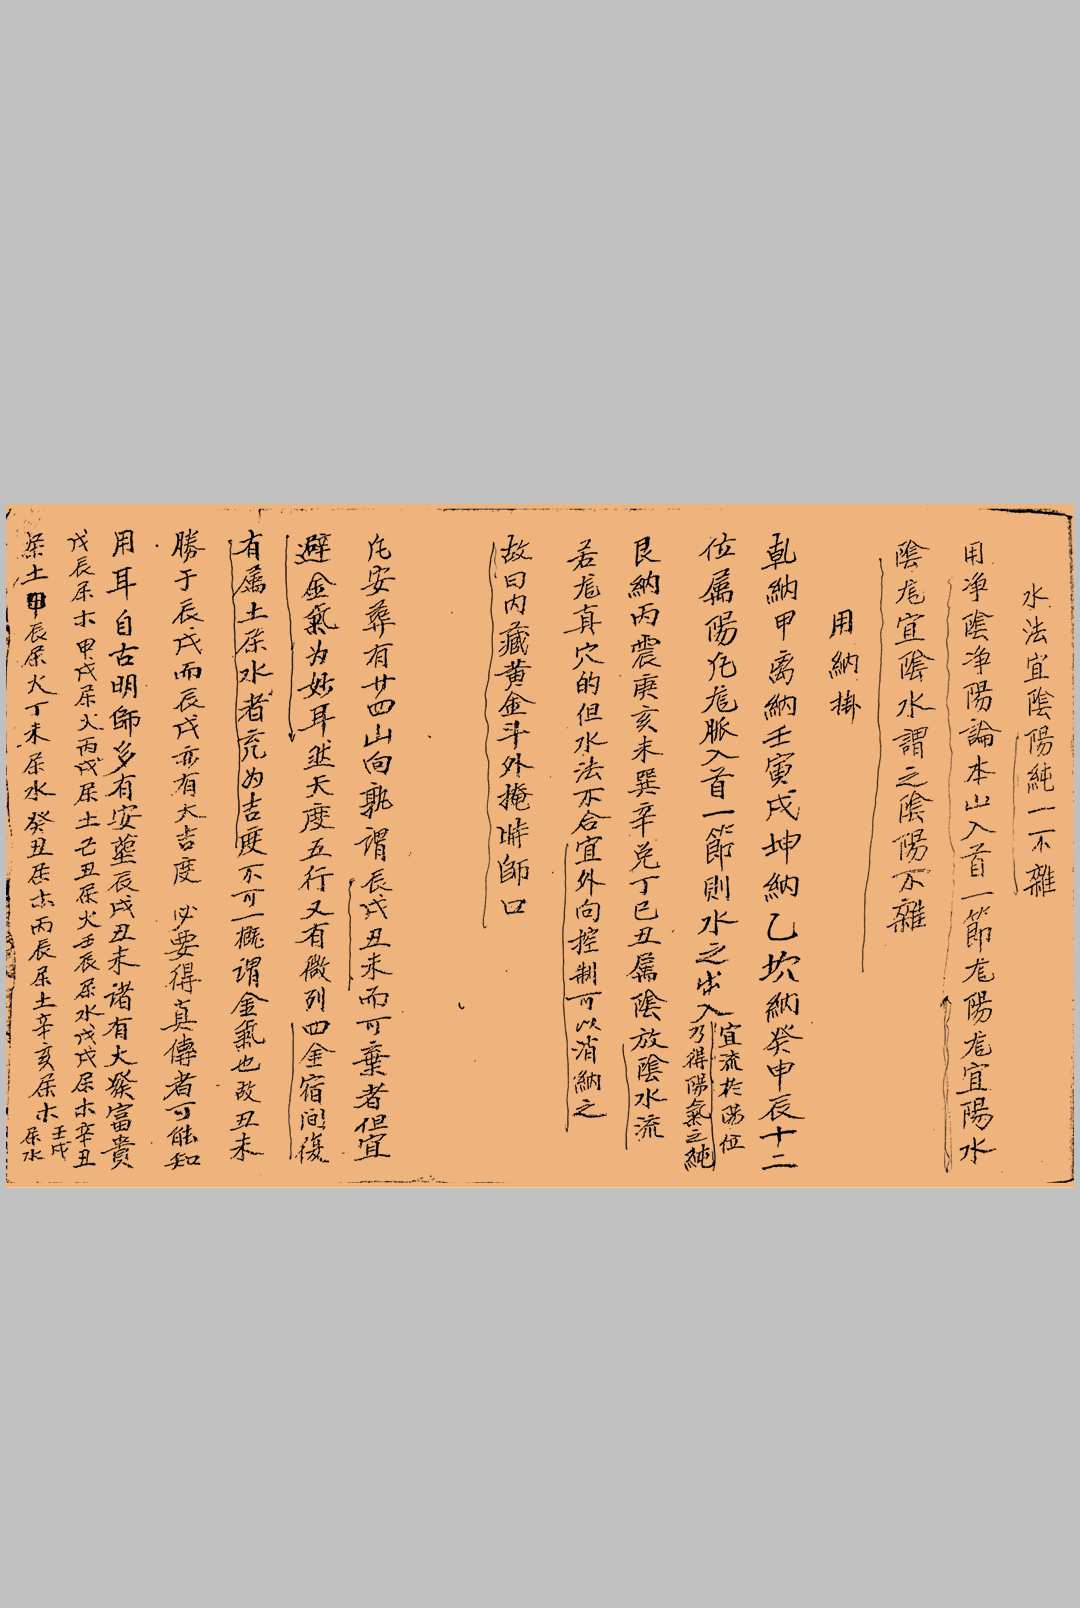 水法宜陰陽純一不雜
用净陰净陽論本山入首一節尨陽尨宜陽水
陰尨宜陰水謂之陰陽不雜
用納掛
乹納甲离納壬寅戌坤納乙坎納癸申辰十二
位属陽凢尨脈入首一節則水之出入
宜流於陽位
乃得陽氣之純
艮納丙震庚亥未巽辛兌丁巳丑属陰放陰水流
若尨真穴的但水法不合宜外向控制可以消納之
故曰内藏黄金斗外掩時師口
凢安葬有廿四山向孰謂辰戌丑未而可棄者但宜
避金氣为妙耳然天度五行又有微列四金宿间復
有属土屎水者充为吉度不可一概謂金氣也故丑未
勝于辰戌而辰戌亦有大吉度 必要得真傳者可能知
用耳自古明師多有安塋辰戌丑未诸有大發富貴
戊辰屎木甲戌屎火丙戌屎土己丑屎火壬辰屎水戊戌屎木辛丑
屎土甲辰屎火丁未屎水癸丑屎木丙辰屎土辛亥屎木
壬戌
屎水